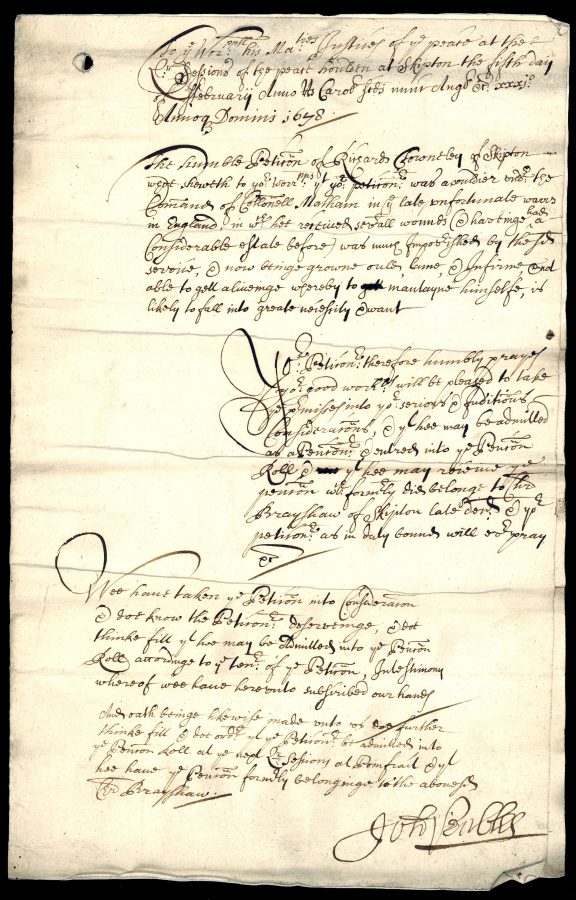 To ye Worpll his Maties Justices of ye peace at the
Qr Sessions of the peace houlden at Skipton the fifth day
of February Anno Rs Carol scdi nunc Angl &c xxxjo
Annoq Domini 1678
The humble Peticon of Richard Townley of Skipton
sheweth to yor Worpps yt yor peticonr was a souldier undr the
Comand of Colonell Malham in ye late unfortunate warrs
in England, in wch hee received severall wounds (& haveinge had a
Considerable estate before) was much impovrished by the sd
service, & now beinge growne ould, lame, & Infirme, & not
able to gett a liveinge whereby to maintayne himselfe, is
likely to fall into greate necissity & want
Yor Peticonr therefore humbly prayes
yor good worpps will be pleased to take
ye premisses into yor serious & juditious
Consideracons, & yt hee may be admitted
as a Penconr & entred into ye Pencon
Roll, & yt hee may receive ye
pencon wch formrly did belonge to
Brayshaw of Skipton late decd & yor
peticonr as in duty bound will evr pray
&c
Wee have taken ye Peticon into Consideracon
& doe know the Peticonrs deserveinge, & doe
thinke fitt yt hee may be admitted into ye Pencon
Roll accordinge to ye tenr of ye Peticon, In testimony
whereof wee have hereunto subscribed our hands
And oath beinge likewise made unto us doe further
thinke fitt & doe ordr yt ye Peticonr be admitted into
ye Pencon Roll at ye next Qr Sessions at Pomfrait & yt
hee have ye Pencon formrly belonginge to the abovesd
Brayshaw.
John